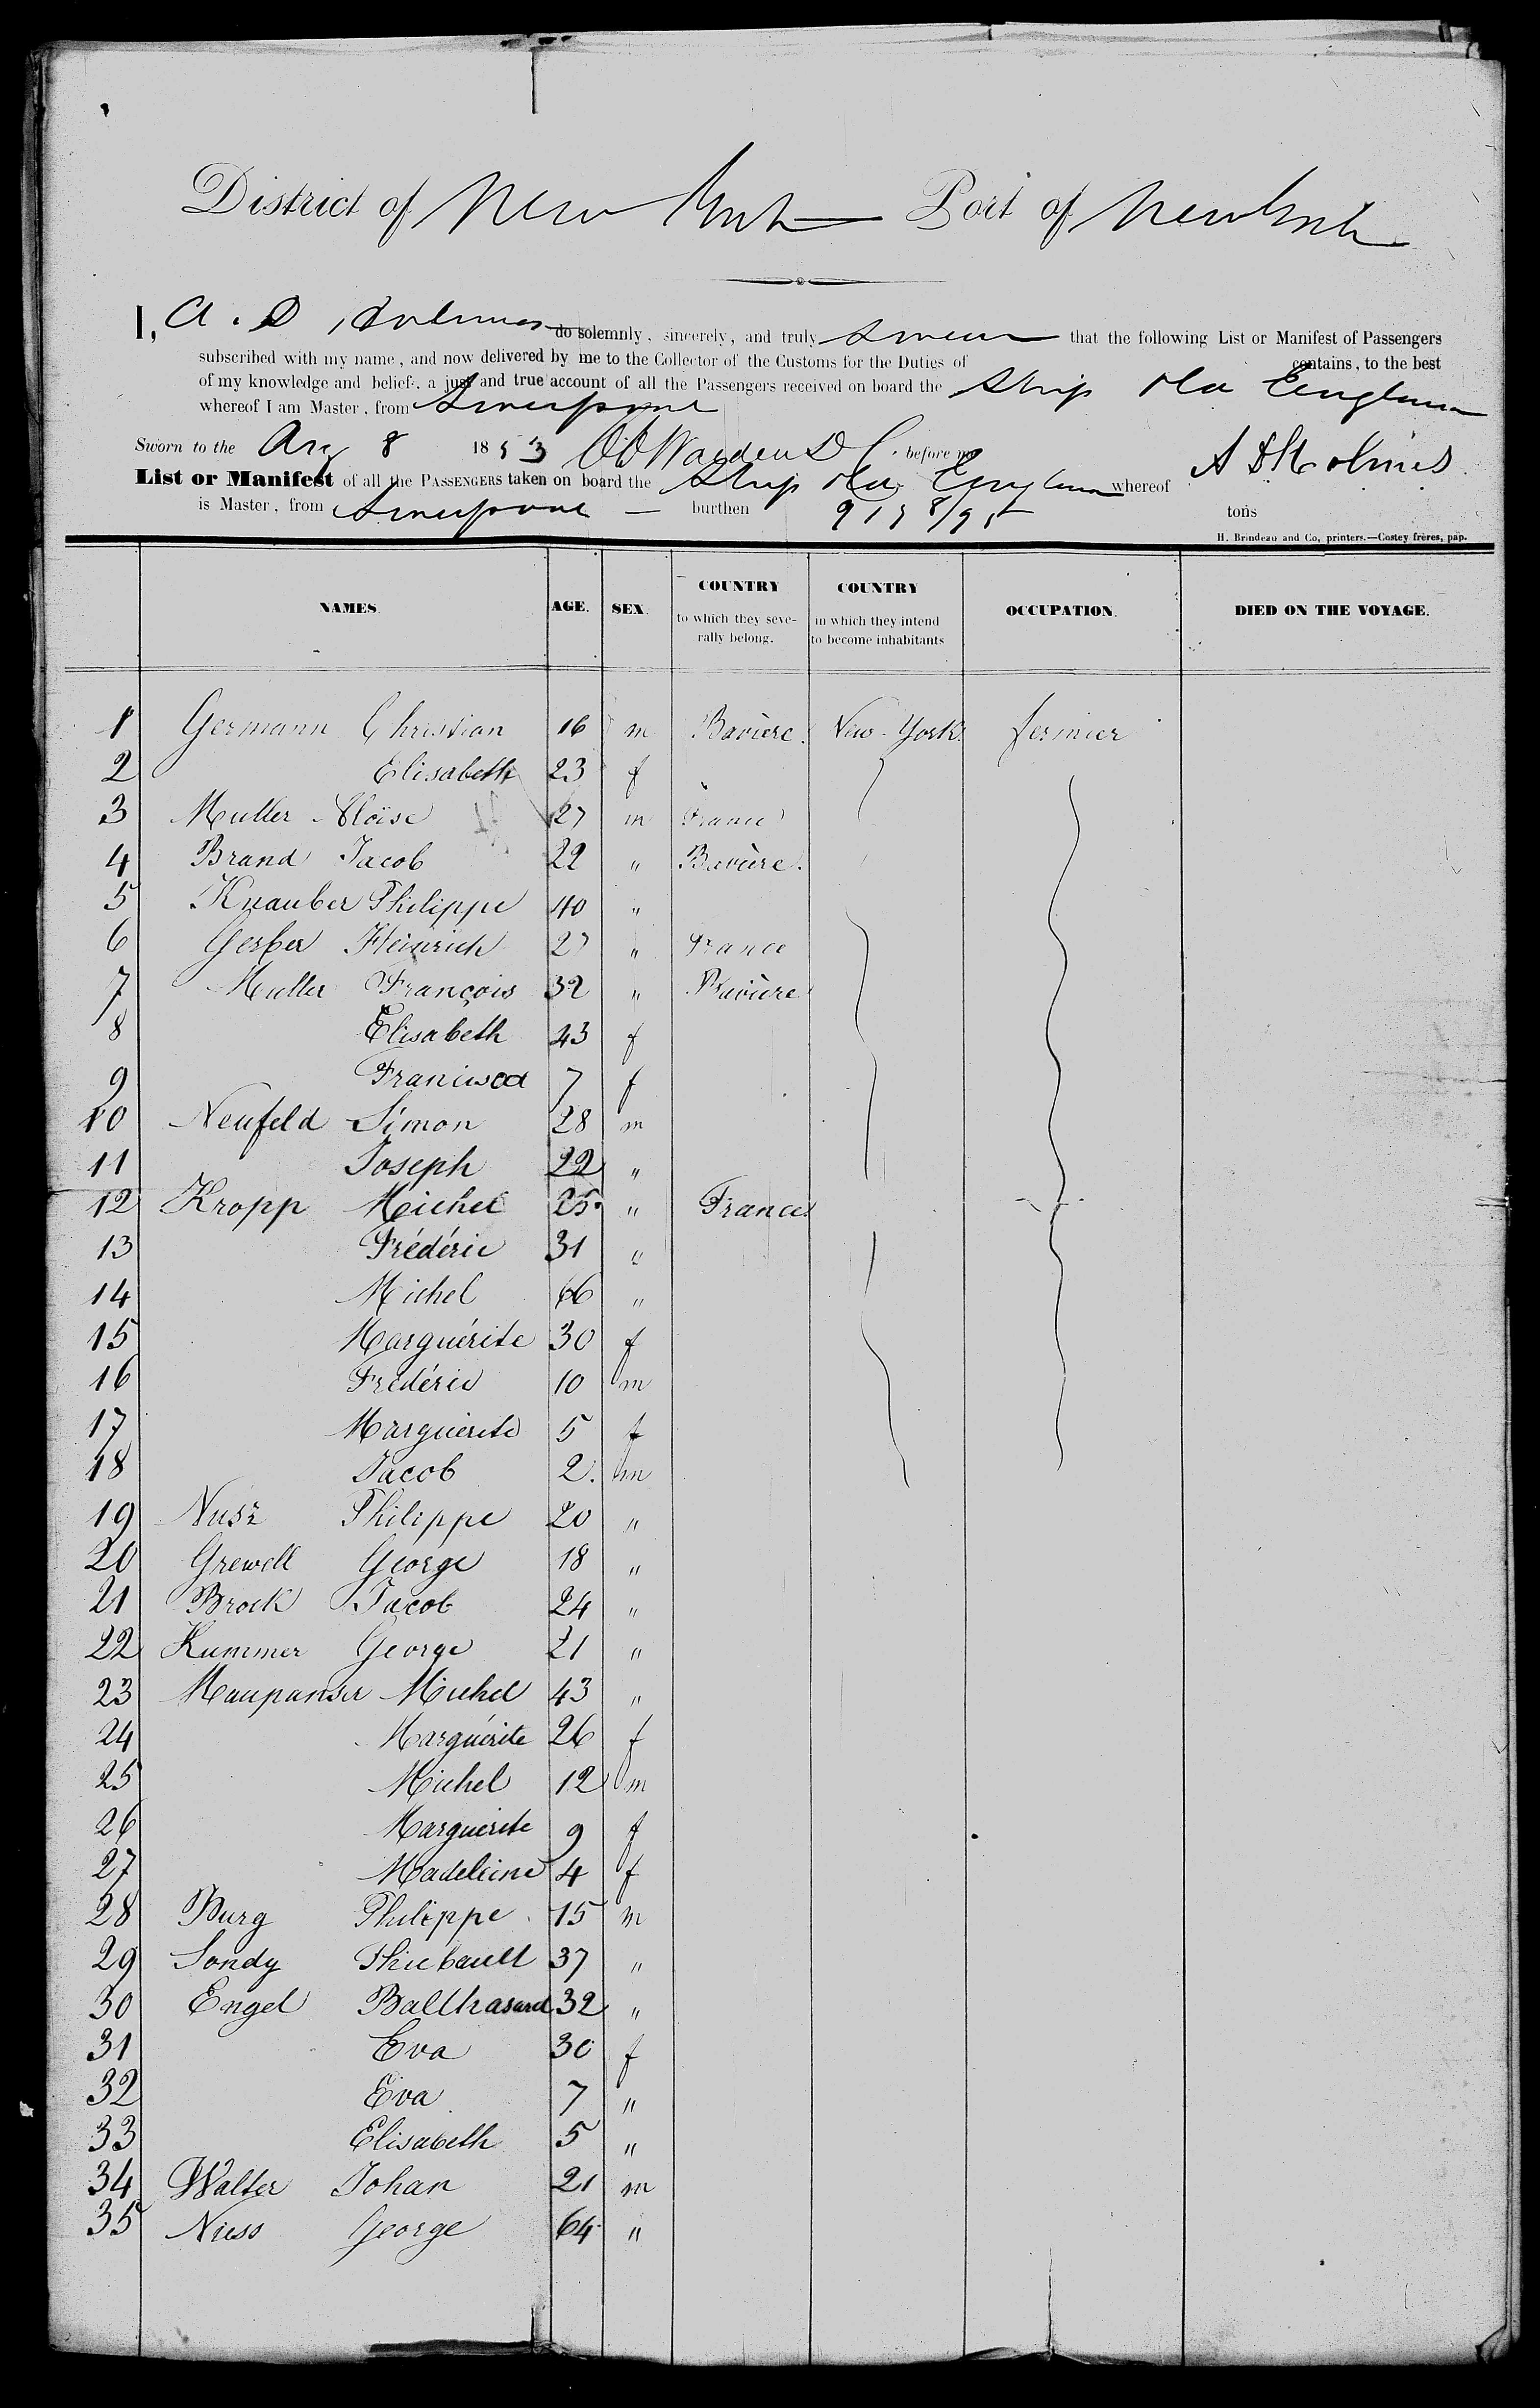 District of New York Port of New York
I, A. D. Holmes do solemnly, sincerely, and truly swear that the following List or Manifest of Passengers
subscribed with my name, and now delivered by me to the Collector of the Customs for the Duties of contains, to the best
of my knowledge and belief, a just and true account of all the Passengers received on board the Ship Old England
whereof I am Master, from Liverpool
Sworn to the Aug 8 1853 before me A D Holmes
List or Manifest of all the PASSENGERS taken on board the Ship Old England whereof
is Master, from Liverpool — burthen tons
H. Brindeau and Co, printers.—Costey frères, pap.
NAMES. AGE. SEX. COUNTRY to which they severally belong. COUNTRY in which they intend to become inhabitants OCCUPATION. DIED ON THE VOYAGE.
1 Germann Christian 16 m Bavière. New-York. fermier
2 Elisabeth 23 f
3 Muller Aloïse 27 m France
4 Brand Jacob 22 " Bavière.
5 Knauber Philippe 40 "
6 Gerber Heinrich 27 " France
7 Muller François 32 " Bavière
8 Elisabeth 43 f
9 7 f
10 Neufeld Simon 28 m
11 Joseph 22 "
12 Kropp Michel 25 " France
13 Frédéric 31 "
14 Michel 66 "
15 Marguérite 30 f
16 Frédéric 10 m
17 Marguérite 5 f
18 Jacob 2. m
19 Nusz Philippe 20 "
20 Grewell George 18 "
21 Brock Jacob 24 "
22 Kummer George 21 "
23 Maupanser Michel 43 "
24 Marguérite 26 f
25 Michel 12 m
26 Marguérite 9 f
27 Madeleine 4 f
28 Burg Philippe 15 m
29 Sondy Thiebault 37 "
30 Engel Balthasard 32 "
31 Eva 30 f
32 Eva 7 "
33 Elisabeth 5 "
34 Walter Johan 21 m
35 Niess George 64 "